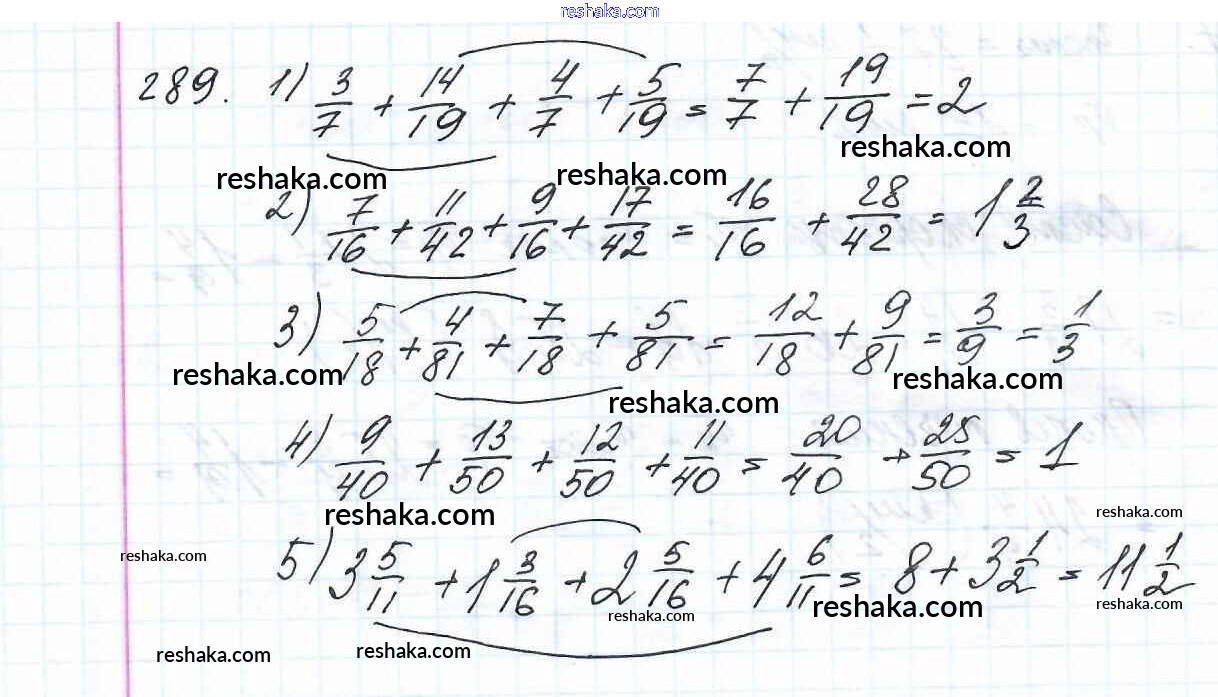 reshaka.com
289. 1) 3/7 + 14/19 + 4/7 + 5/19 = 7/7 + 19/19 = 2
reshaka.com
reshaka.com
reshaka.com
2) 7/16 + 11/42 + 9/16 + 17/42 = 16/16 + 28/42 = 1 2/3
3) 5/18 + 4/81 + 7/18 + 5/81 = 12/18 + 9/81 = 3/9 = 1/3
reshaka.com
reshaka.com
reshaka.com
4) 9/40 + 13/50 + 12/50 + 11/40 = 20/40 + 25/50 = 1
reshaka.com
reshaka.com
reshaka.com
5) 3 5/11 + 1 3/16 + 2 5/16 + 4 6/11 = 8 + 3 1/2 = 11 1/2
reshaka.com
reshaka.com
reshaka.com
reshaka.com
reshaka.com